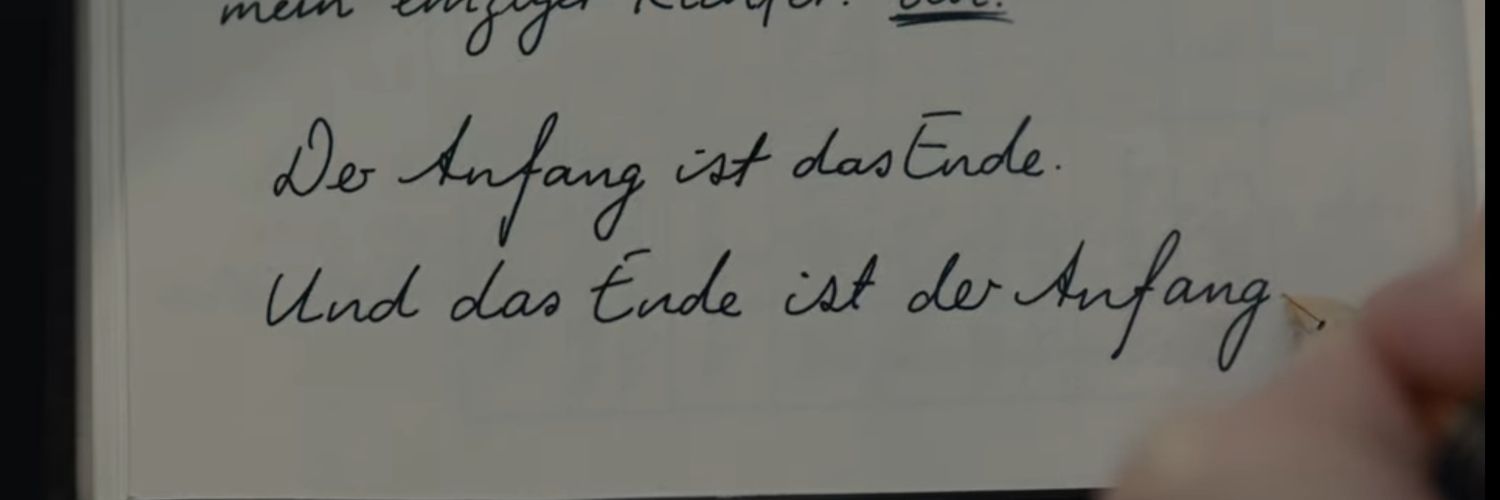 mein einziger
Der Anfang ist das Ende.
Und das Ende ist der Anfang.